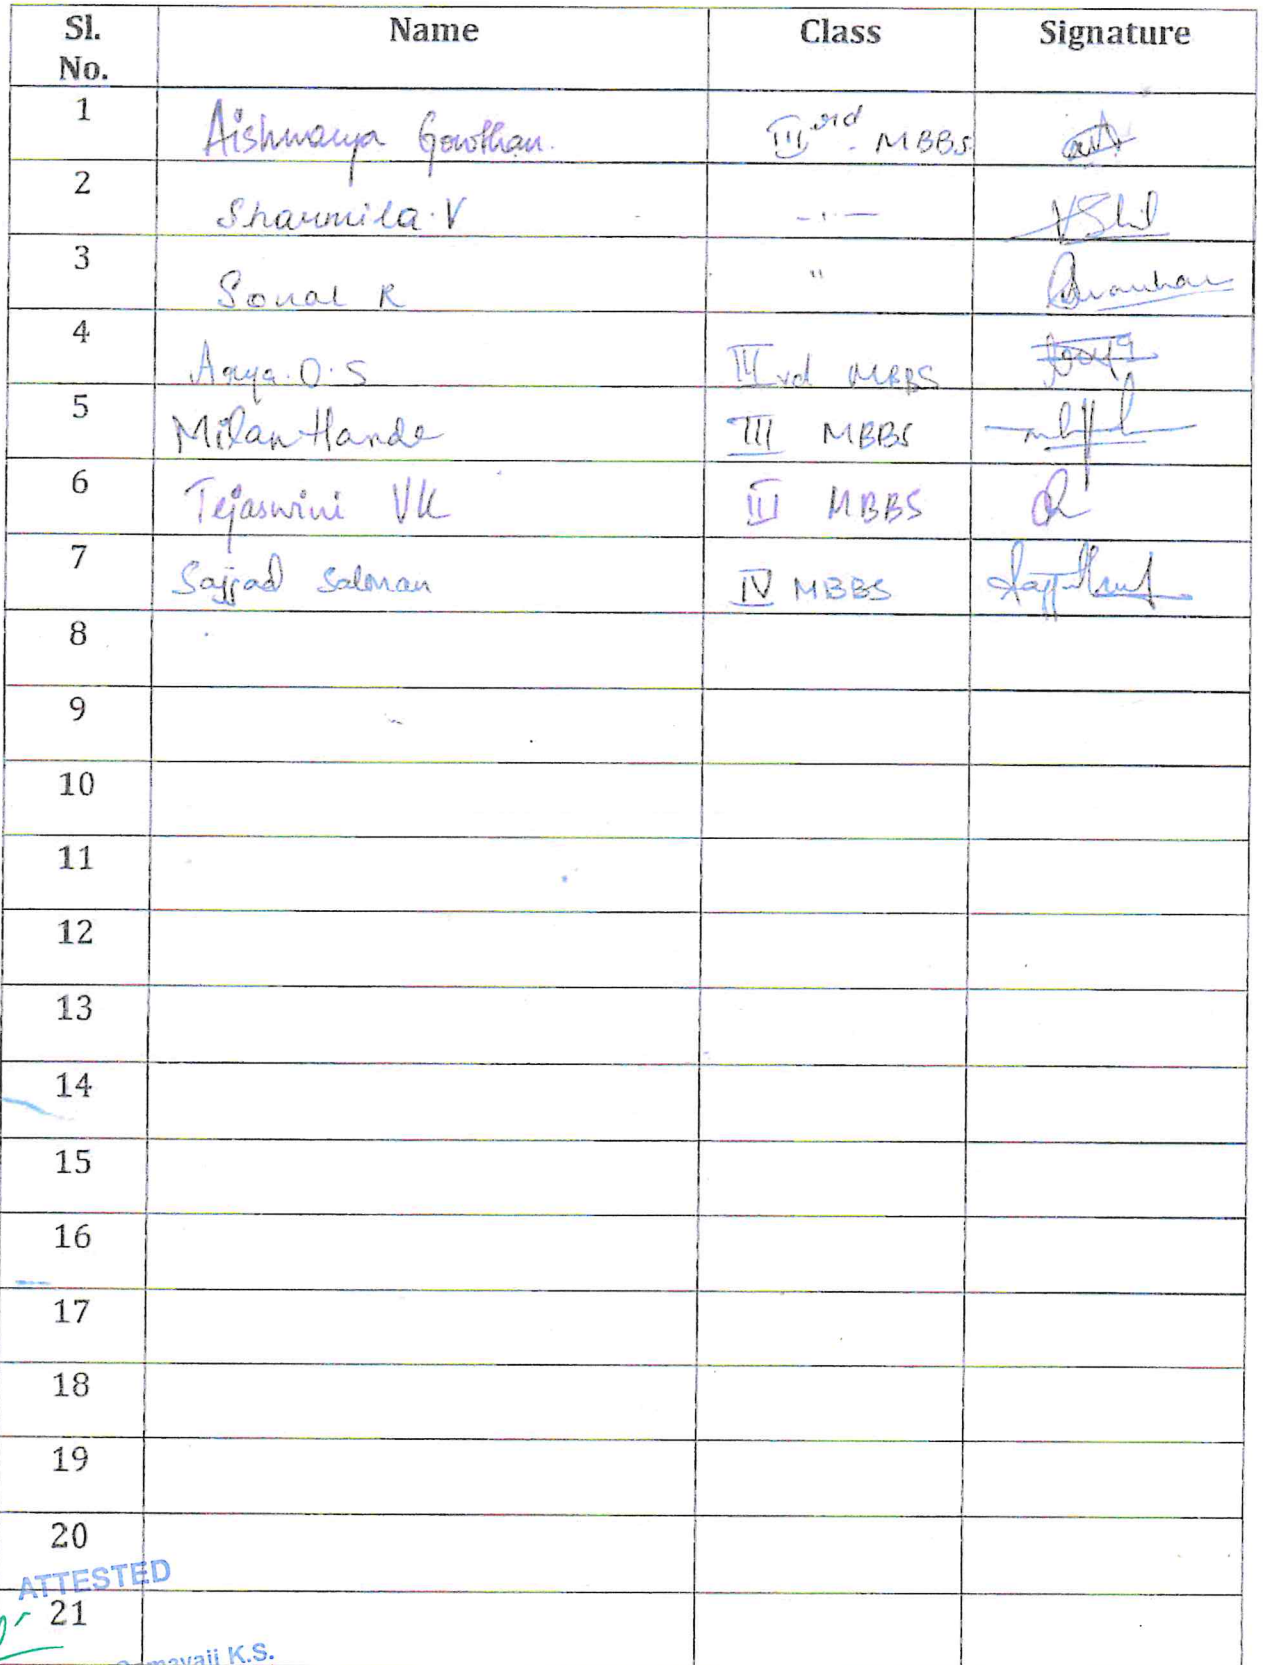 Sl. No. Name Class Signature
1 Aishwarya Gowthan. III rd MBBS
2 Sharmila.V -"-
3 Sonal R "
4 Arya.O.S III rd MBBS
5 Milan Hande III MBBS
6 Tejaswini VK III MBBS
7 Sajjad Salman IV MBBS
8
9
10
11
12
13
14
15
16
17
18
19
20
ATTESTED
21
K.S.